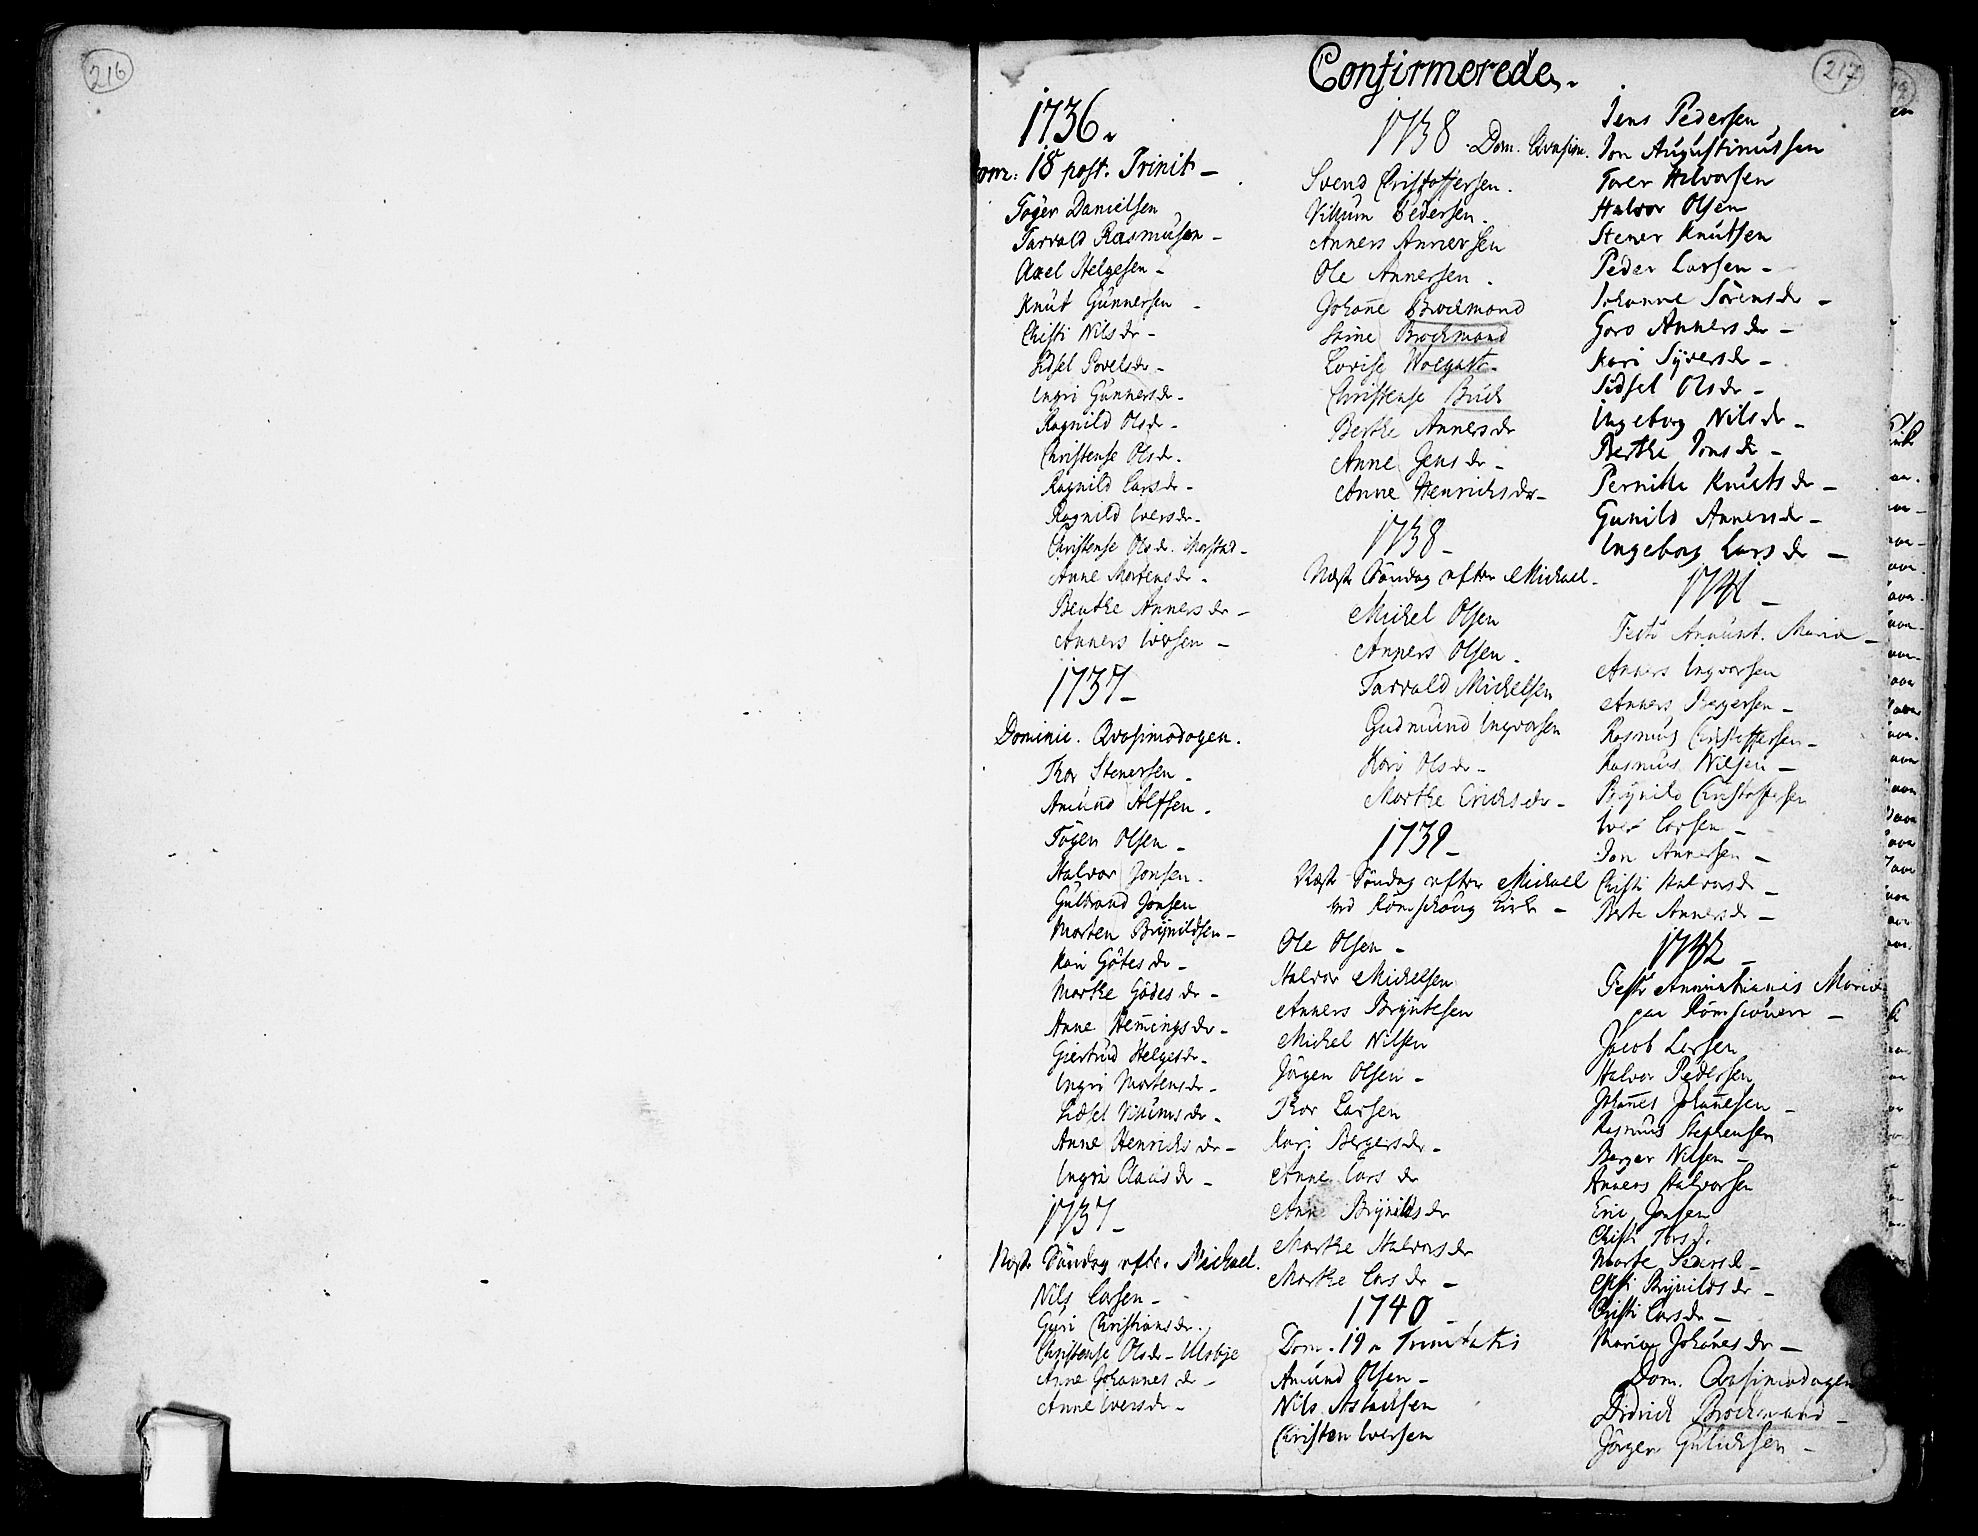 216
217
Confirmerede.
1736.
Dom: 18 post. Trinit
Töger Danielsen
Tarvald Rasmusen
Axel Helgesen
Knut Gunnersen
Christi Nilsdr
Sidsel Povelsdr
Ingri Gunnersdr
Ragnild Olsdr
Christense Olsdr
Ragnild Larsdr
Ragnild Iversdr
Christense Olsdr.
Anne Mortensdr
Benthe Annersdr
Anners Iversen
1737
Dominic. Qvasimodogen.
Thor Stenersen
Amund Alfsen
Töger Olsen
Halvor Jonsen
Gulbrand Jonsen
Morten Brynildsen
Kari Götesdr
Marthe Gödesdr
Anne Hem̄ingsdr
Giertrud Helgesdr
Ingri Mortensdr
Sidsel Villumsdr
Anne Henrichsdr
Ingri Clausdr
1737
Næst Söndag efter Michael.
Nils Larsen
Guri Christiansdr
Christense Olsdr Ulsbye
Anne Johannesdr
Anne Iversdr
1738. Dom. Qvasim.
Svend Christoffersen.
Villum Pedersen.
Anners Annersen
Ole Annersen.
Johan̄e Brochmand
Stine Brochmand
Lovise Wolgast
Christense Buch
Berthe Annersdr
Anne Gensdr
Anne Henrichsdr
1738
Næste Söndag efter Michael
Michel Olsen
Anners Olsen.
Tarvald Michelsen
Gudmund Ingvorsen
Kari Olsdr
Marthe Erichsdr
1739
Næst Söndag efter Michael
ved Römschoug Kirke
Ole Olsen
Halvor Michelsen
Anners Bryntesen
Michel Nilsen
Jörgen Olsen
Thor Larsen
Kari Bergersdr
Anne Larsdr
Anne Brynildsdr
Marthe Halvorsdr
Marthe Larsdr
1740
Dom. 19 a Trinitatis
Amund Olsen
Nils Aslachsen
Christen Iversen
Jens Pedersen
Jon Augustinussen
Torer Halvorsen
Halvor Olsen
Stener Knutsen
Peder Larsen
Johanne Sörensdr
Goro Annersdr
Kari Syversdr
Sidsel Olsdr
Ingeborg Nilsdr
Berthe Jonsdr
Pernille Knutsdr
Gunild Annersdr
Ingeborg Larsdr
1741
Festo Anunt. Mariæ
Anners Ingvorsen
Anners Bergersen
Rasmus Christoffersen
Rasmus Nilsen
Brynild Christoffersen
Iver Larsen
Jon Annersen
Christi Halvorsdr
Berte Annersdr
1742
Festo Annuntiationis Mariæ
paa Römscouen
Jacob Larsen
Halvor Pedersen
Johan̄es Johan̄esen
Rasmus Stephensen
Berger Nilsen
Anners Halvorsen
Eric Jonsen
Christi Torsd.
Marte
Christi Brynildsdr
Christi Larsdr
Maria Johanesdr
Dom. Qvasimodogen
Didrich Brochmand
Jörgen Gulichsen